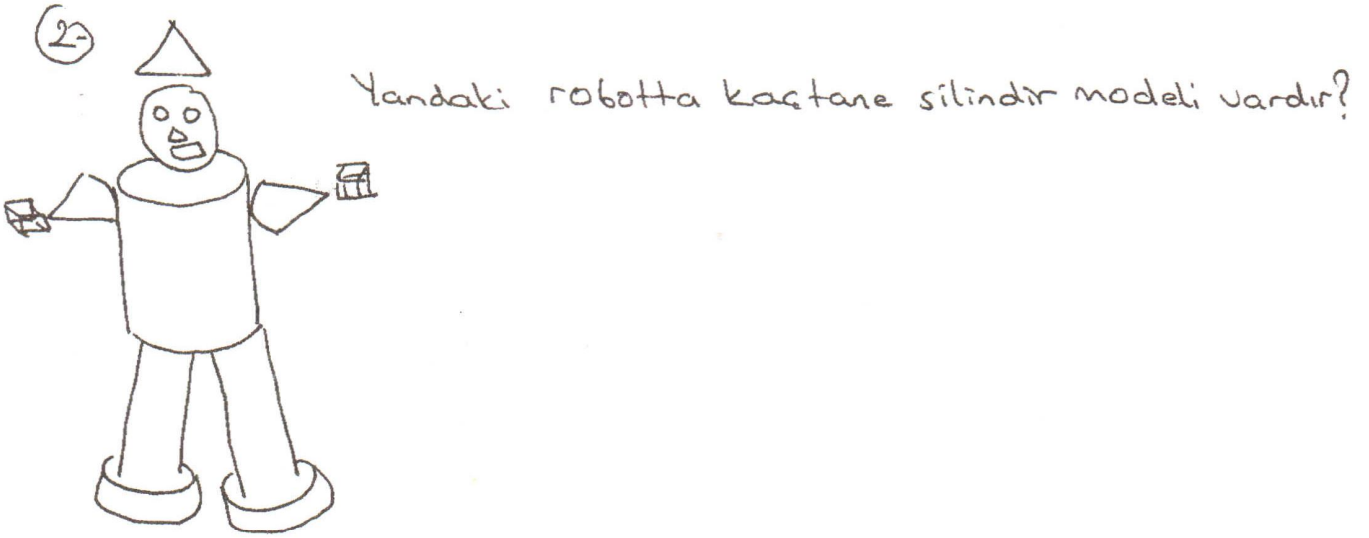 2-
Yandaki robotta kaçtane silindir modeli vardır?